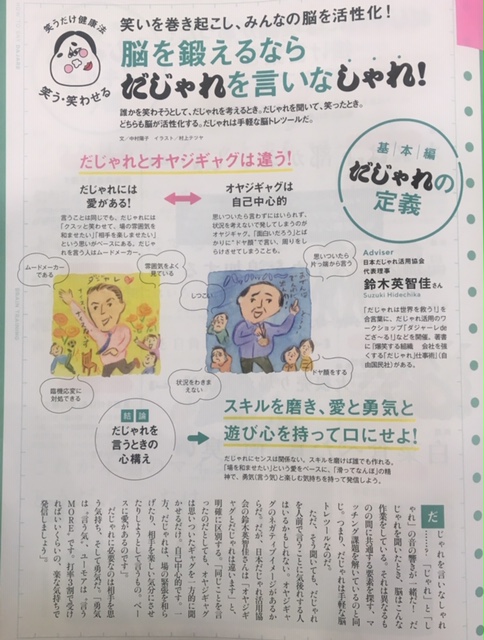 笑うだけ健康法
笑う・笑わせる
笑いを巻き起こし、みんなの脳を活性化!
脳を鍛えるなら
だじゃれを言いなしゃれ!
誰かを笑わそうとして、だじゃれを考えるとき。だじゃれを聞いて、笑ったとき。
どちらも脳が活性化する。だじゃれは手軽な脳トレツールだ。
文/中村陽子 イラスト/村上テツヤ
基本編
だじゃれの
定義
だじゃれとオヤジギャグは違う!
だじゃれには
愛がある!
言うことは同じでも、だじゃれには
「クスッと笑わせて、場の雰囲気を
和ませたい」「相手を楽しませたい」
という思いがベースにある。だじゃ
れを言う人はムードメーカー。
オヤジギャグは
自己中心的
思いついたら言わずにはいられず、
状況を考えないで発してしまうのが
オヤジギャグ。「面白いだろう」とば
かりに“ドヤ顔”で言い、周りをし
らけさせてしまうことも。
ムードメーカー
である
雰囲気をよく
見ている
臨機応変に
対処できる
しつこい
思いついたら
片っ端から言う
状況をわきま
えない
ドヤ顔をする
Adviser
日本だじゃれ活用協会
代表理事
鈴木英智佳さん
Suzuki Hidechika
「だじゃれは世界を救う!」を
合言葉に、だじゃれ活用のワ
ークショップ「ダジャーレ de
ござ〜る!」などを開催。著書
に『爆笑する組織 会社を強
くする「だじゃれ」仕事術』(自
由国民社)がある。
結論
だじゃれを
言うときの
心構え
スキルを磨き、愛と勇気と
遊び心を持って口にせよ!
だじゃれにセンスは関係ない。スキルを磨けば誰でも作れる。
「場を和ませたい」という愛をベースに、「滑ってなんぼ」の精
神で、勇気(言う気)と楽しむ気持ちを持って発信しよう。
だじゃれを言いなしゃれ
……?。「じゃれ」と「し
ゃれ」の音の響きが一緒だ!だ
じゃれを聞いたとき、脳はこんな
作業をしている。それは異なるも
のの間に共通する要素を探す、マ
ッチング課題を解いているのと同
じ。つまり、だじゃれは手軽な脳
トレツールなのだ。
ただ、そう聞いても、だじゃれ
を人前で言うことに気後れする人
はいるかもしれない。オヤジギャ
グのネガティブイメージがあるか
らだ。だが、日本だじゃれ活用協
会の鈴木英智佳さんは「オヤジギ
ャグとだじゃれは違います」と、
明確に区別する。「同じことを言
ったのだとしても、オヤジギャグ
は思いついたギャグを一方的に聞
かせるだけ。自己中心的です。一
方、だじゃれは、場の緊張を和ら
げたり、相手を楽しい気分にさせ
たりしようとして言うもの。ベー
スに愛があるのです」。
だじゃれに必要なのは相手を思
いやる気持ち、そして勇気だ。「勇気
は“言う気”、ユーモアは“言う
MORE”です。打率は1割で受け
ればいいくらいの、楽な気持ちで
発信しましょう」。